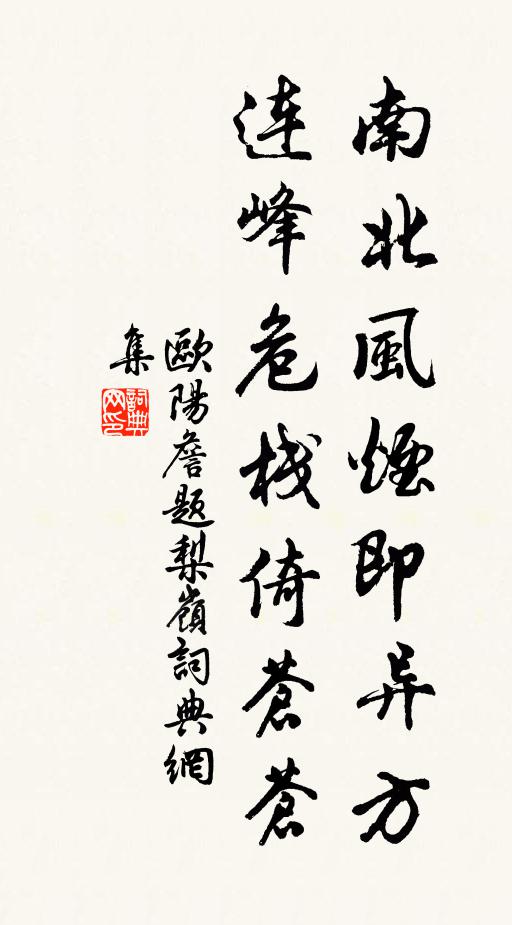 南北風煙即异方
連峰危栈倚蒼蒼
歐陽詹題梨嶺詞典網
集
詞典网印